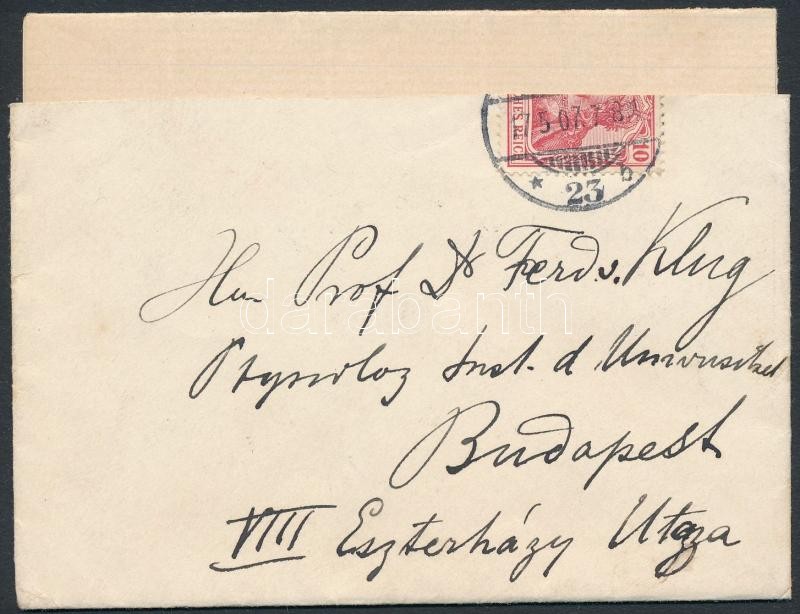 HES REICH
10
17.5.07.7-8N
* 23 b
Herrn Prof Dr Ferd v. Klug
Physiolog Inst. d Universität
Budapest
VIII Eszterházy Utcza
darabanth